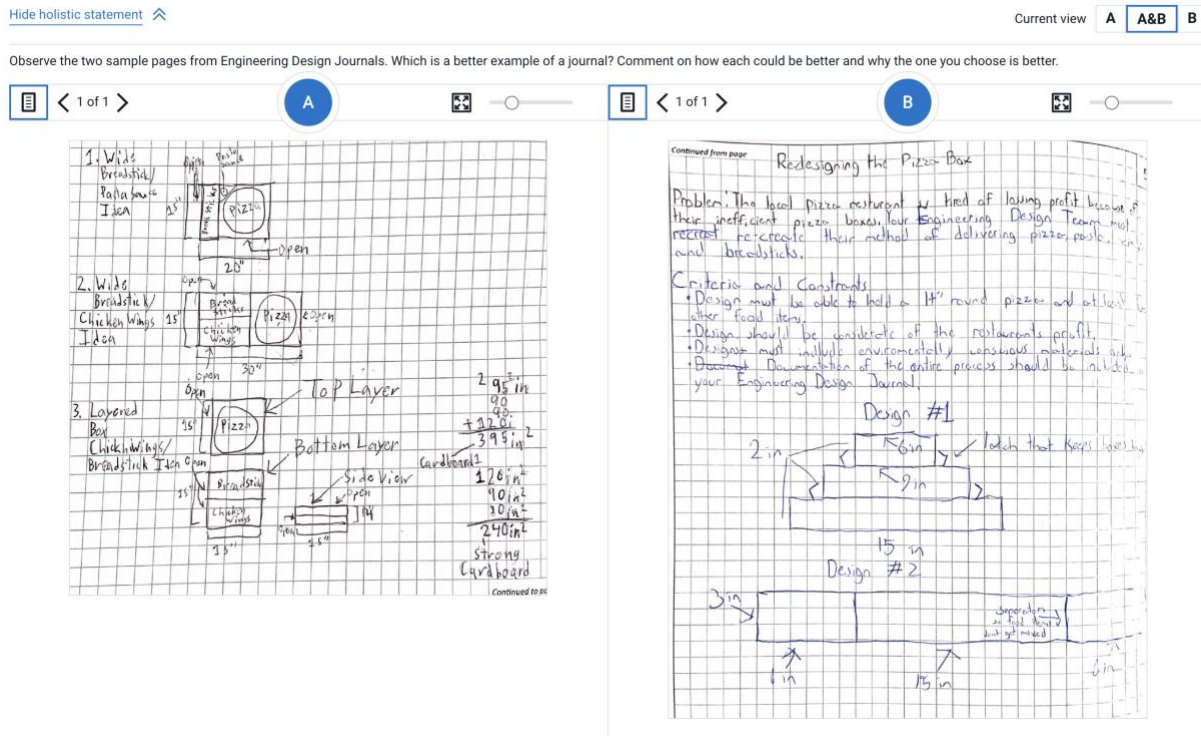 Hide holistic statement
Current view A A&B B
Observe the two sample pages from Engineering Design Journals. Which is a better example of a journal? Comment on how each could be better and why the one you choose is better.
1 of 1
A
1 of 1
B
1. Wide
Breadstick/
Pasta Sauce
Idea
15"
Pizza
Open
20"
2. Wide
Breadstick/
Chicken Wings
Idea
Open
15"
Bread
Sticks
Chicken
Wings
Pizza
Open
Open
30"
3. Layered
Box
Chicken Wings/
Breadstick Idea
Open
15"
Pizza
Top Layer
Open
15"
Breadstick
Chicken
Wings
15"
Bottom Layer
Side View
Open
Open
15"
95 in
90
90
+120
395in²
Cardboard
120in²
90in²
30in²
240in²
Strong
Cardboard
Continued to
Continued from page
Redesigning the Pizza Box
Problem: The local pizza resturant is tired of lossing profit because of
their inefficient pizza boxes. Your Engineering Design Team must
re-create their method of delivering pizza, pasta,
and breadsticks.
Criteria and Constrants
• Design must be able to hold a 14" round pizza and at least
other food items.
• Design should be considerate of the restaurants profit.
• Designs must include enviromentally consious materials
• Documentation of the entire process should be included
your Engineering Design Journal.
Design #1
2 in
6in
latch that keeps boxes
9in
15 in
Design #2
3in
Seperators
so food items
dont get mixed
6in
15 in
6in